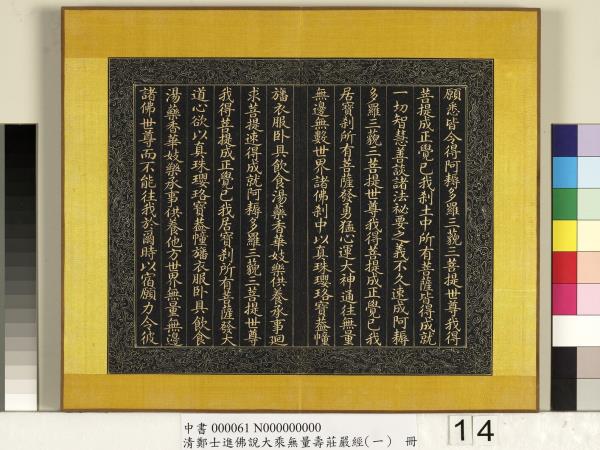 願悉皆令得阿耨多羅三藐三菩提世尊我得
菩提成正覺已我剎土中所有菩薩皆得成就
一切智慧善談諸法祕要之義不久速成阿耨
多羅三藐三菩提世尊我得菩提成正覺已我
居寶剎所有菩薩發勇猛心運大神通往無量
無邊無數世界諸佛剎中以真珠瓔珞寶葢幢
旛衣服臥具飲食湯藥香華妓樂供養承事迴
求菩提速得成就阿耨多羅三藐三菩提世尊
我得菩提成正覺已我居寶剎所有菩薩發大
道心欲以真珠瓔珞寶葢幢旛衣服臥具飲食
湯藥香華妓樂承事供養他方世界無量無邊
諸佛世尊而不能往我於爾時以宿願力令彼
中書 000061 N000000000
清鄭士進佛說大乘無量壽莊嚴經(一) 冊
14